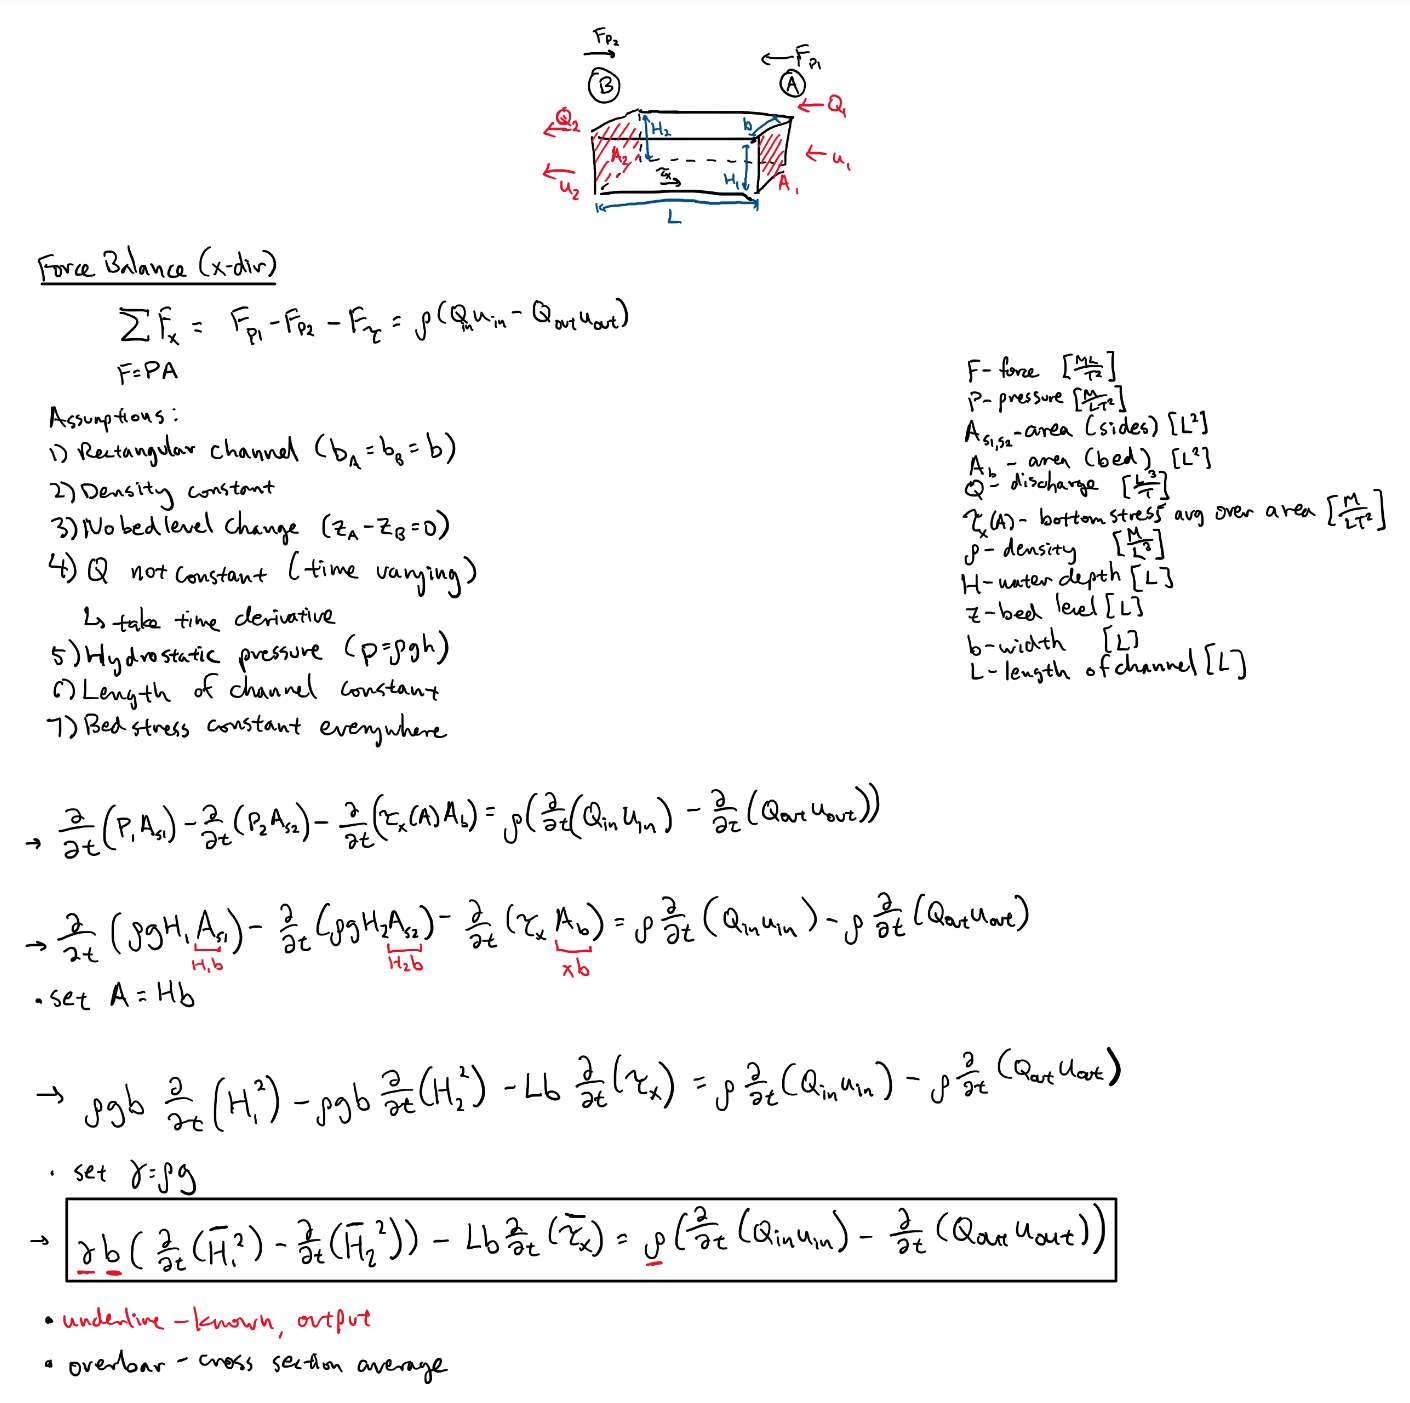 F_P2
F_P1
B
A
Q₂
Q₁
H₂
b
A₂
u₁
u₂
τₓ
H₁
A₁
L
Force Balance (x-dir)
∑Fₓ = F_P1 - F_P2 - F_τ = ρ(Q_in u_in - Q_out u_out)
F=PA
Assumptions:
1) Rectangular channel (b_A = b_B = b)
2) Density constant
3) No bed level change (z_A - z_B = 0)
4) Q not constant (time varying)
↳ take time derivative
5) Hydrostatic pressure (p=ρgh)
6) Length of channel constant
7) Bed stress constant everywhere
F- force [ML/T²]
P- pressure [M/LT²]
A_s1,s2 - area (sides) [L²]
A_b - area (bed) [L²]
Q- discharge [L³/T]
τₓ(A) - bottom stress avg over area [M/LT²]
ρ- density [M/L³]
H- water depth [L]
z- bed level [L]
b- width [L]
L- length of channel [L]
→ ∂/∂t (P₁A_s1) - ∂/∂t (P₂A_s2) - ∂/∂t (τₓ(A)A_b) = ρ(∂/∂t (Q_in u_in) - ∂/∂t (Q_out u_out))
→ ∂/∂t (ρgH₁A_s1) - ∂/∂t (ρgH₂A_s2) - ∂/∂t (τₓ A_b) = ρ ∂/∂t (Q_in u_in) - ρ ∂/∂t (Q_out u_out)
H₁b H₂b xb
• set A = Hb
→ ρgb ∂/∂t (H₁²) - ρgb ∂/∂t (H₂²) - Lb ∂/∂t (τₓ) = ρ ∂/∂t (Q_in u_in) - ρ ∂/∂t (Q_out u_out)
• set γ=ρg
→ γb(∂/∂t (H̄₁²) - ∂/∂t (H̄₂²)) - Lb ∂/∂t (τ̄ₓ) = ρ(∂/∂t (Q_in u_in) - ∂/∂t (Q_out u_out))
• underline - known, output
• overbar - cross section average